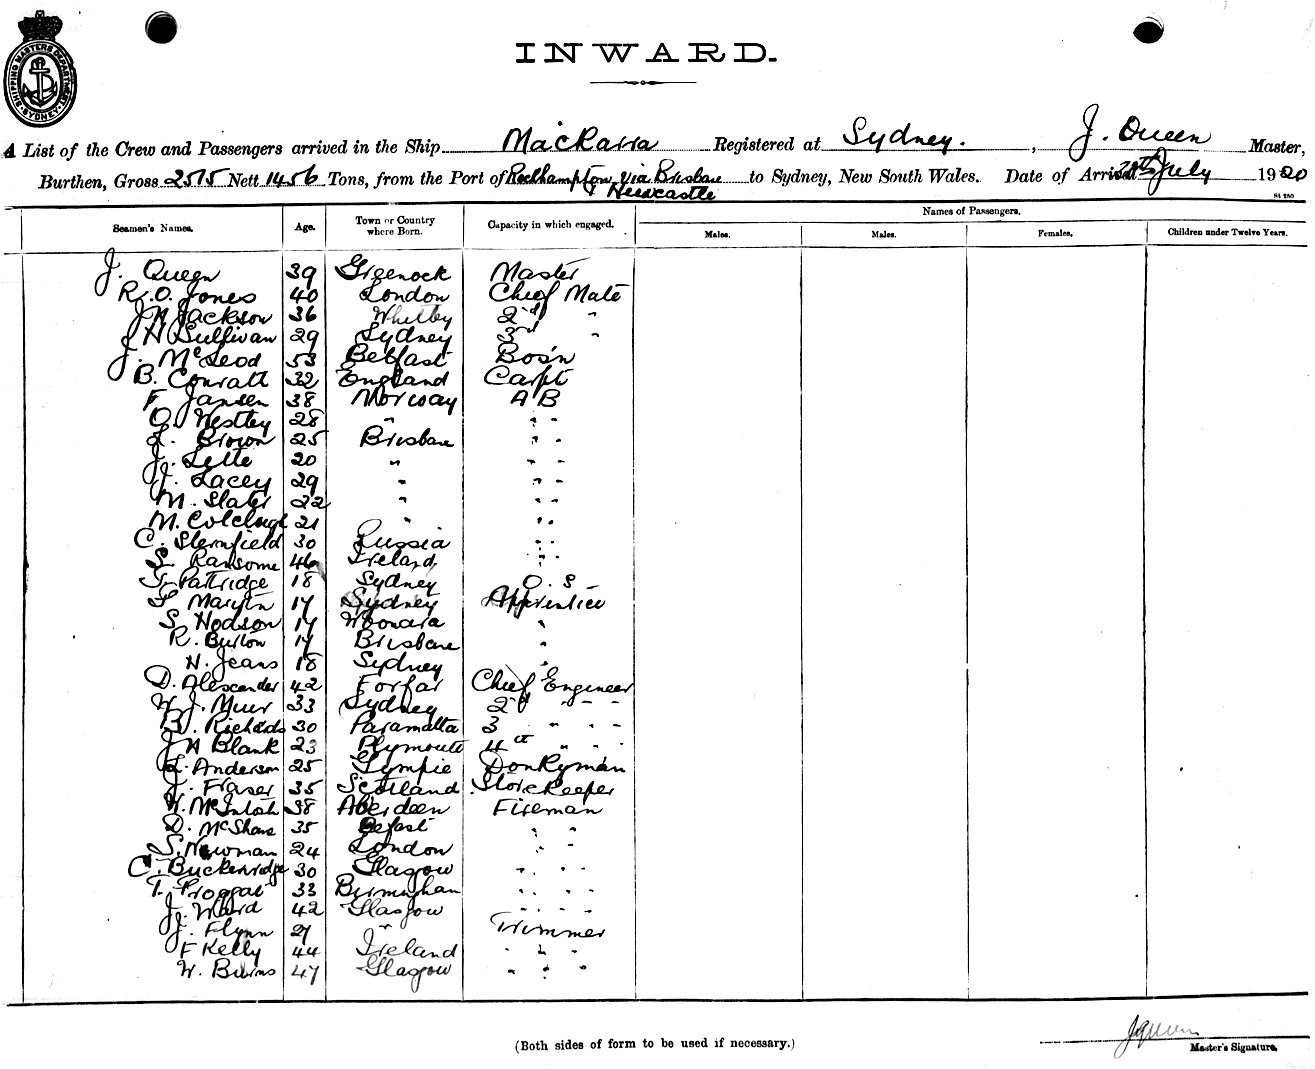 SHIPPING MASTERS DEPARTMENT SYDNEY
INWARD.
A List of the Crew and Passengers arrived in the Ship Mackarra Registered at Sydney. , J. Queen Master,
Burthen, Gross 2575 Nett 1456 Tons, from the Port of Rockhampton via Brisbane to Sydney, New South Wales. Date of Arrival 20th July 1920
& Newcastle
Seamen's Names. Age. Town or Country where Born. Capacity in which engaged. Names of Passengers.
Males. Males. Females. Children under Twelve Years.
J. Queen 39 Greenock Master
R. O. Jones 40 London Chief Mate
J N Jackson 36 Whitby 2nd "
J H Sullivan 29 Sydney 3rd "
J. McLeod 53 Belfast Bos'n
B. Conratt 32 England Carpt
F. Jansen 38 Norway A B
O. Westley 28 " " "
L. Brown 25 Brisbane " "
J. Lette 20 " " "
J. Lacey 29 " " "
M. Slater 22 " " "
M. Colclough 21 " " "
C. Sternfield 30 Russia " "
S. Ransome 46 Ireland " "
G. Partridge 18 Sydney O. S
Martin 17 Sydney Apprentice
S. Hodson 17 Woonara "
R. Burton 17 Brisbane "
H. Jeans 18 Sydney "
D. Alexander 42 Forfar Chief Engineer
W. J. Muir 33 Sydney 2nd " "
B. Richards 30 Paramatta 3 " "
J H Blank 23 Plymouth 4th " "
L. Anderson 25 Gympie Donkyman
J. Fraser 35 Scotland Storekeeper
W. McIntosh 38 Aberdeen Fireman
D. McShane 35 Befast " "
S. Newman 24 London " "
C. Buckenridge 30 Glasgow " "
T. Froggat 33 Birmingham " "
J. Ward 42 Glasgow " "
J. Flynn 27 " Trimmer
F Kelly 44 Ireland " "
W. Burns 47 Glasgow " "
(Both sides of form to be used if necessary.)
J Queen
Master's Signature.